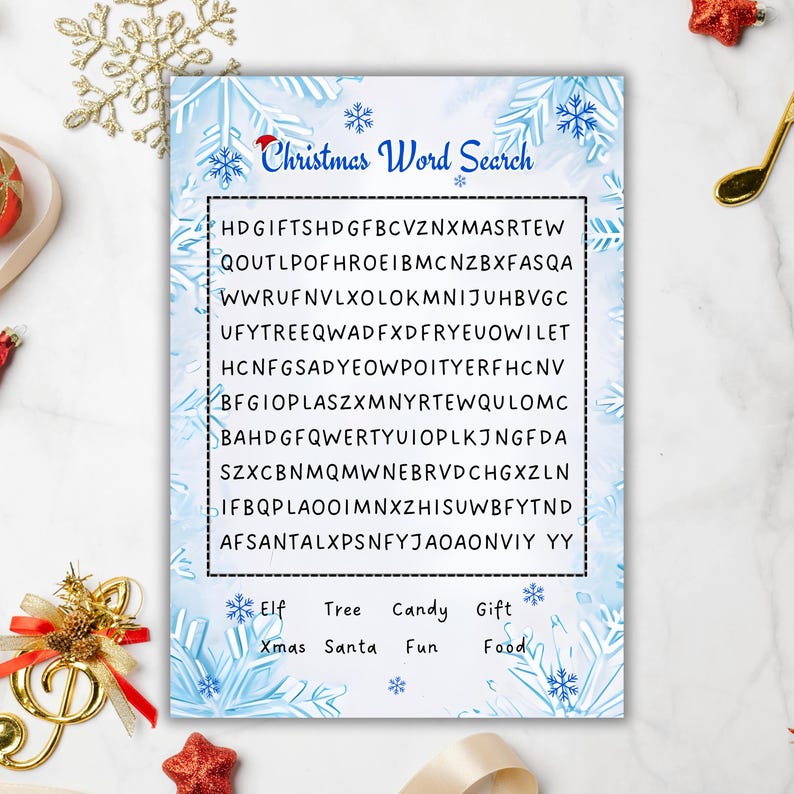 Christmas Word Search
HDGIFTSHDGFBCVZNXMASRTEW
QOUTLPOFHROEIBMCNZBXFASQA
WWRUFNVLXOLOKMNIJUHBVGC
UFYTREEQWADFXDFRYEUOWILET
HCNFGSADYEOWPOITYERFHCNV
BFGIOPLASZXMNYRTEWQULOMC
BAHDGFQWERTYUIOPLKJNGFDA
SZXCBNMQMWNEBRVDCHGXZLN
IFBQPLAOOIMNXZHISUWBFYTND
AFSANTALXPSNFYJAOAONVIY YY
Elf Tree Candy Gift
Xmas Santa Fun Food